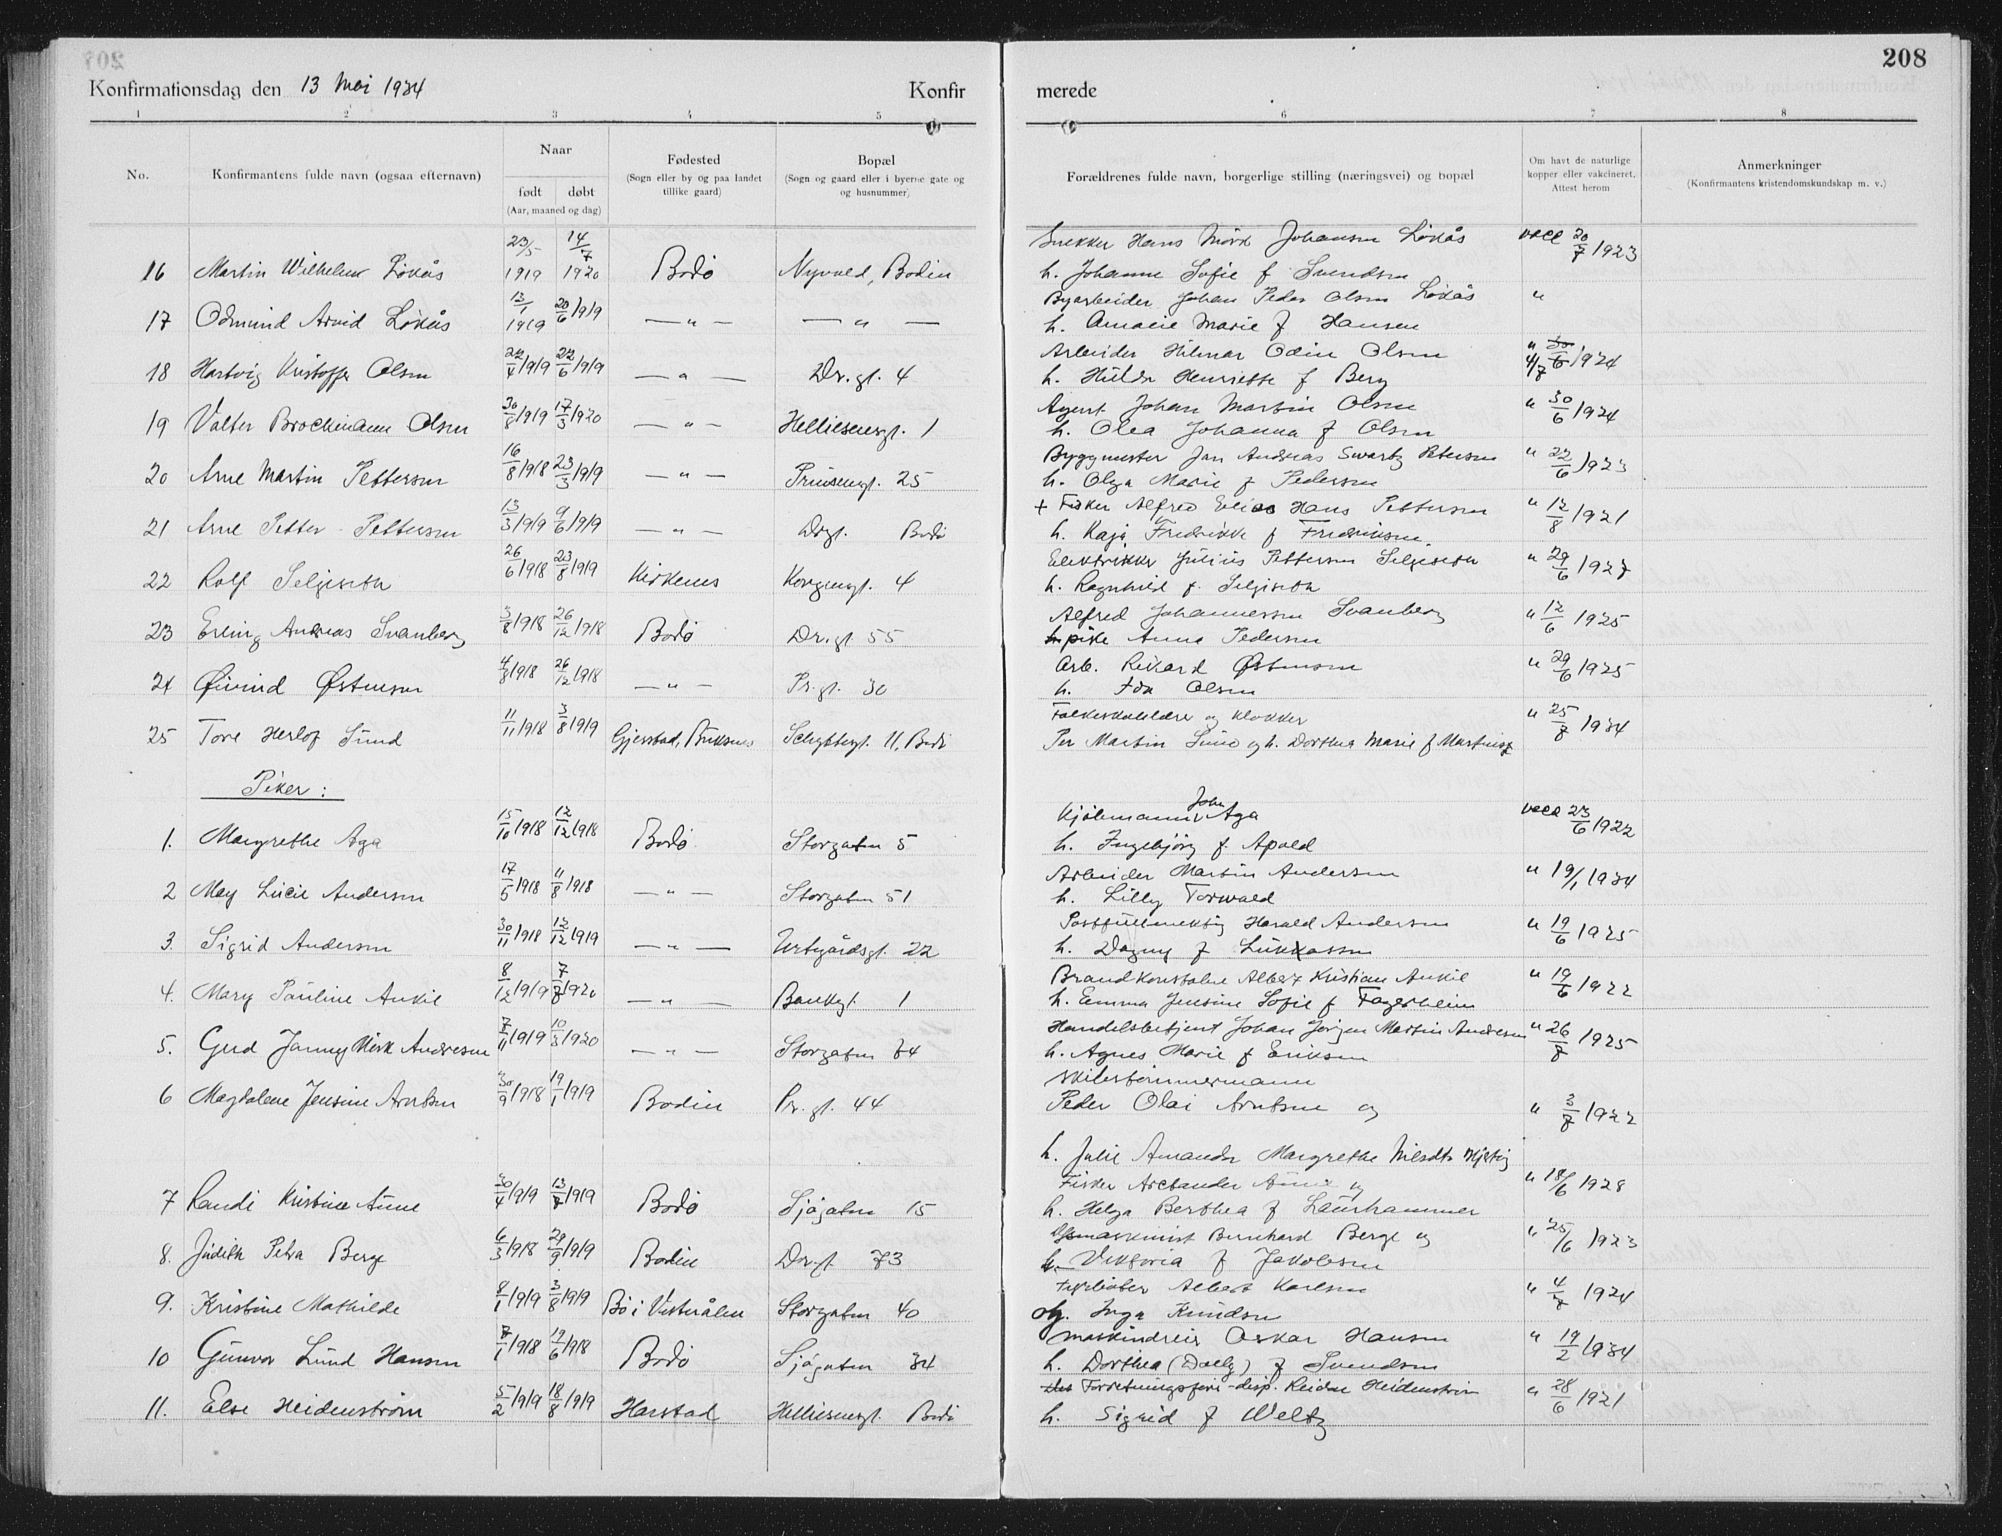 208
Konfirmationsdag den 13 Mai 1934 Konfirmerede
1 2 3 4 5 6 7 8
No. Konfirmantens fulde navn (ogsaa efternavn) Naar født døbt (Aar, maaned og dag) Fødested (Sogn eller by og paa landet tillike gaard) Bopæl (Sogn og gaard eller i byerne gate og og husnummer) Forældrenes fulde navn, borgerlige stilling (næringsvei) og bopæl Om havt de naturlige kopper eller vakcineret. Attest herom Anmerkninger (Konfirmantens kristendomskundskap m. v.)
16 Martin Wilhelm Løkås 23/5 1919 14/7 1920 Bodø Nyvold, Bodin Snekker Hans Johansen Løkås vacc 20/7 1923
h. Johanne Sofie f Svendsen
17 Odmund Arvid Løkås 13/1 1919 20/6 1919 — " — — " — Byarbeider Johan Peder Olsen Løkås "
h. Amalie Marie f Hansen
18 Hartvig Kristoffer Olsen 22/4 1919 22/6 1919 — " — Dr.gt. 4 Arbeider Hilmar Odin Olsen " 30/6 4/7 1924
h. Hilda Henriette f Berg
19 Valter Brockmann Olsen 30/8 1919 17/3 1920 — " — Helliesensgt. 1 Agent Johan Martin Olsen " 30/6 1924
h. Olea Johanna f Olsen
20 Arne Martin Pettersen 16/8 1918 23/3 1919 — " — Prinsensgt. 25 Byggmester Jan Andreas Swartz Petersen " 22/6 1923
h. Olga Marie f Pedersen
21 Arne Petter Pettersen 13/3 1919 9/6 1919 — " — Drgt. Bodø + Fisker Alfred Elias Hans Pettersen " 12/8 1921
h. Kaja Fredrikke f Fredriksen.
22 Rolf Seljeseth 26/6 1918 23/8 1919 Kirkenes Kongensgt. 4 Elektriker Julius Pettersen Seljeseth " 29/6 1927
h. Ragnhild f. Seljeseth
23 Erling Andreas Svanberg 3/8 1918 26/12 1918 Bodø Dr.gt 55 Alfred Johannessen Svanberg " 12/6 1925
pike Anna Pedersen
24 Øivind Østensen 4/8 1918 26/12 1918 — " — Pr.gt. 30 Arb. Rikard Østensen " 29/6 1925
h. Ida Olsen
25 Tore Herlof Sund 11/11 1918 3/8 1919 Gjerstad, Buksnes Schyttesgt. 11, Bodø Folkeskolelærer og klokker " 25/7 1934
Per Martin Sund og h. Dorthea Marie f
Piker:
1. Margrethe Aga 15/10 1918 12/12 1918 Bodø Storgaten 5 Kjøbmann John Aga vacc 23/6 1922
h. Ingebjørg f Apold
2 May Lucie Andersen 17/5 1918 11/8 1918 — " — Storgaten 51 Arbeider Martin Andersen " 19/1 1934
h. Lilly Torvald
3. Sigrid Andersen 30/11 1918 12/12 1919 — " — Urtegårdsgt. 22 Postfullmektig Harald Andersen " 19/6 1925
h. Dagny f Lukkassen
4. Mary Pauline Ankil 8/12 1919 7/8 1920 — " — Bankgt. 1 Brandkonstabel Albert Kristian Ankil " 19/6 1922
h. Emma Jensine Sofie f Fagerheim
5. Gerd Jenny Mørk Andresen 7/11 1919 10/3 1920 — " — Storgaten 74 Handelsbetjent Johan Jørgen Martin Andresen " 26/7 1925
h. Agnes Marie f Eriksen
6 Magdalene Jensine Arntsen 30/9 1918 19/1 1919 Bodin Pr.gt. 44 Skibstømmermann
Peder Olai Arntsen og " 3/7 1922
h. Julie Amanda Margrethe
7 Randi Kristine Aune 30/4 1919 13/7 1919 Bodø Sjøgaten 15 Fisker Aune og " 18/6 1928
h. Helga Berthea f Laurhammer
8. Judith Petra Berg 6/3 1918 29/9 1919 Bodin Dr.gt 73 Bernhard Berge og " 25/6 1923
h. Viktoria f Jakobsen
9. Kristine Mathilde 8/1 1919 3/8 1919 Bø i Vesterålen Storgaten 40 Albert Karlsen " 4/7 1924
og. Inga Knudsen
10 Gunvor Lund Hansen 7/1 1918 19/6 1918 Bodø Sjøgaten 34 Maskindreier Oskar Hansen " 19/2 1934
h. Dorthea (Dolly) f Svendsen
11. Else Heidenstrøm 5/2 1919 18/8 1919 Harstad Helliesensgt. Bodø Forretningsfører-disp. Reidar Heidenstrøm " 28/6 1921
h. Sigrid f Weltz